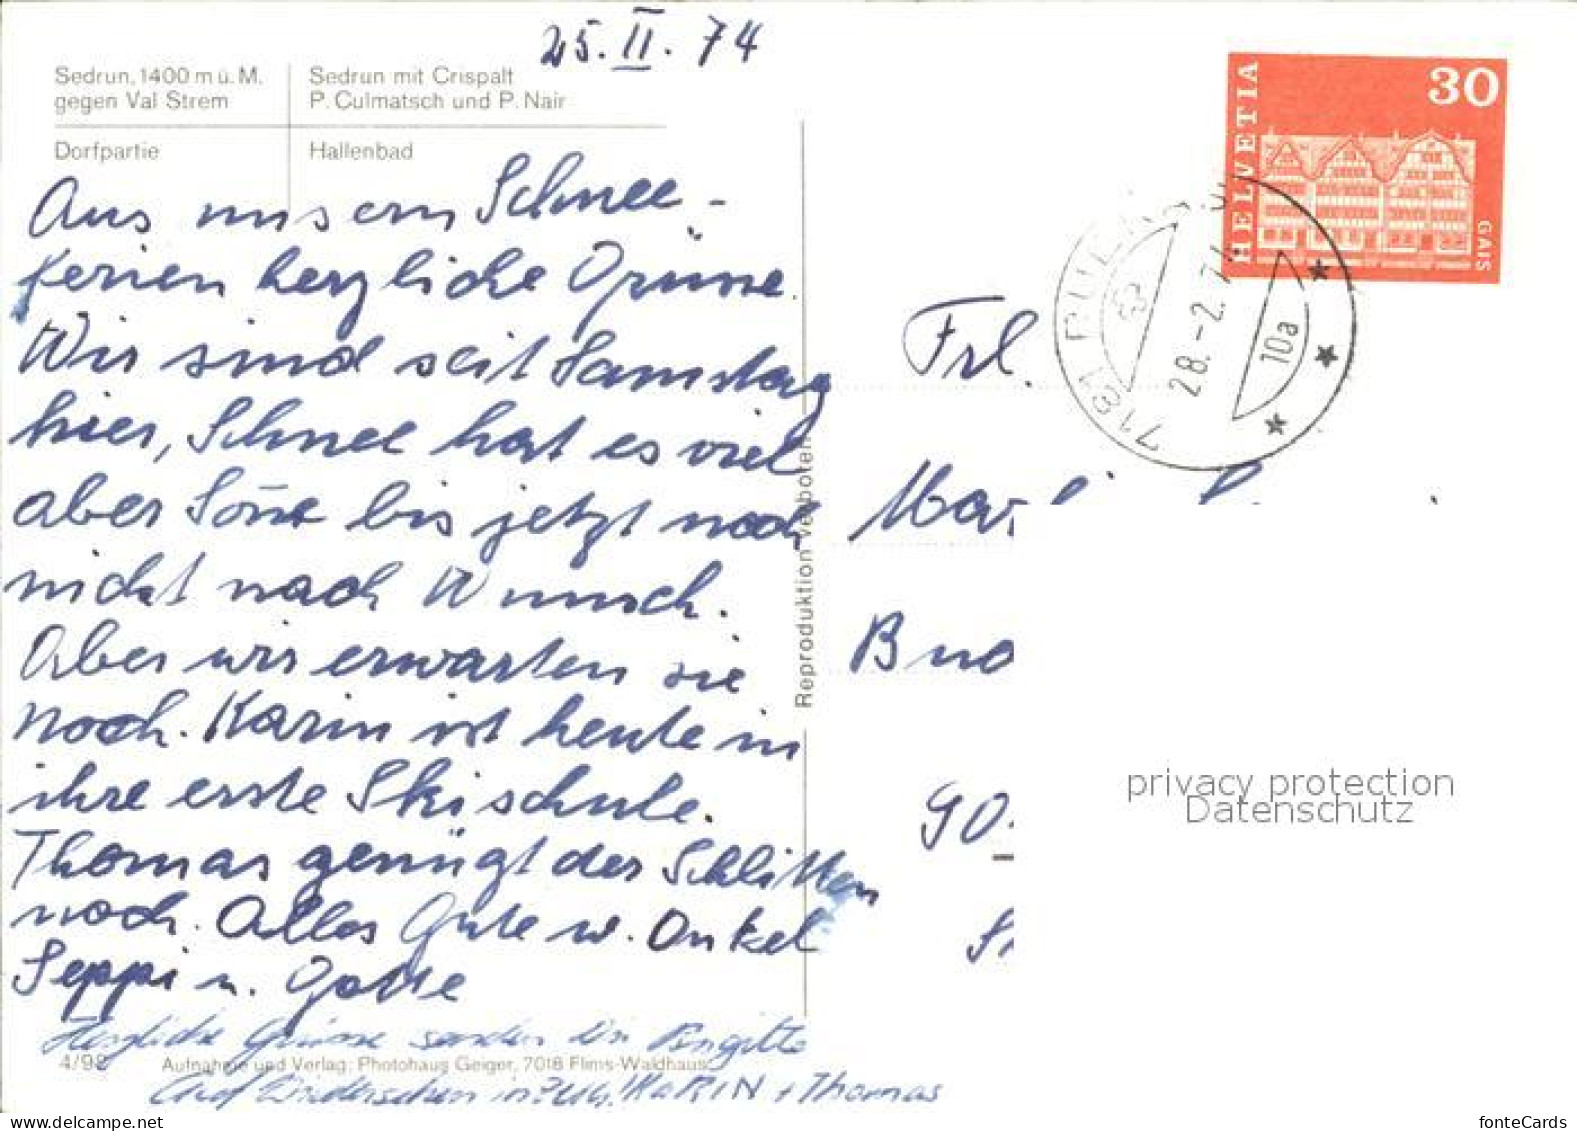 25.II.74
Sedrun, 1400 m ü. M.
gegen Val Strem
Sedrun mit Crispalt
P. Culmatsch und P. Nair
Dorfpartie
Hallenbad
Aus unsern Schnee-
ferien herzliche Grüsse.
Wir sind seit Samstag
hier, Schnee hat es viel
aber Sonne bis jetzt noch
nicht nach Wunsch.
Aber wir erwarten sie
noch. Karin ist heute in
ihre erste Skischule.
Thomas genügt der Schlitten
noch. Alles Gute w. Onkel
Seppi u. Gotte
Herzliche Grüsse senden Dir Brigitte
4/98 Aufnahme und Verlag: Photohaus Geiger, 7018 Flims-Waldhaus
Auf Wiedersehen in Zug! KARIN + Thomas
Reproduktion verboten
HELVETIA
30
GAIS
28.-2.74
10a
Frl.
90
privacy protection
Datenschutz
fonteCards